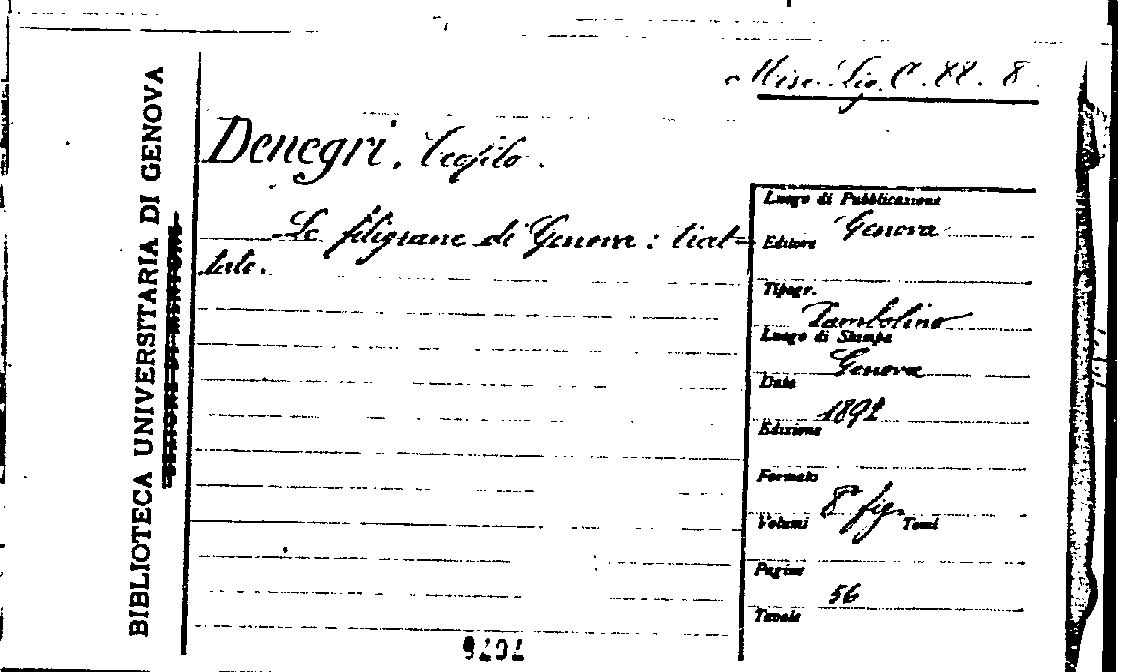 Misc. Lig. C. XX. 8.
Denegri, Teofilo.
Le filigrane di Genova: trat=
tato.
Luogo di Pubblicazione
Genova
Editore
Tipogr.
Tambolino
Luogo di Stampa
Genova
Data
1892
Edizione
Formato
8° fig.
Volumi Tomi
Pagine
56
Tavole
BIBLIOTECA UNIVERSITARIA DI GENOVA